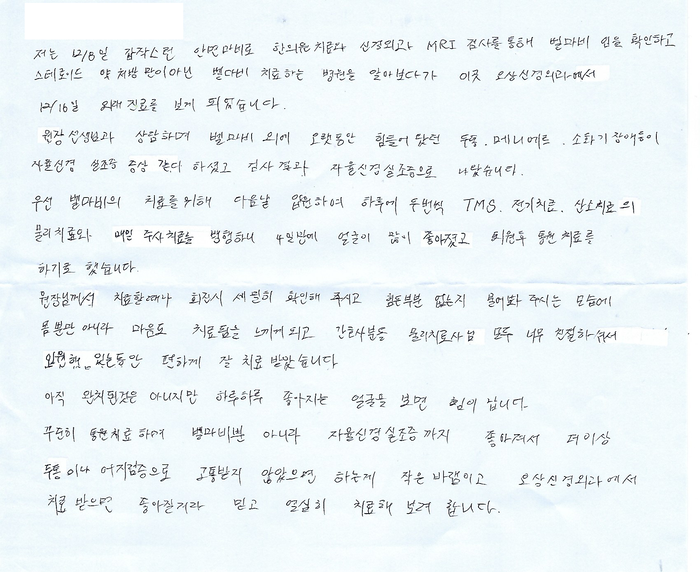 저는 12/8일 갑작스런 안면마비로 한의원치료와 신경외과 MRI 검사를 통해 벨마비 인을 확인하고
스테로이드 약 처방 만이 아닌 벨마비 치료하는 병원을 알아보다가 이곳 오상신경외과에서
12/16일 외래 진료를 보게 되었습니다.
원장 선생님과 상담하며 벨마비 외에 오랫동안 힘들어 했던 두통, 메니에르, 소화기 장애등이
자율신경 실조증 증상 같다 하셨고 검사 결과 자율신경실조증으로 나왔습니다.
우선 벨마비의 치료를 위해 다음날 입원하여 하루에 두번씩 TMS, 전기치료, 산소치료 의
물리치료와 매일 주사치료을 병행하니 4일만에 얼굴이 많이 좋아졌고 퇴원후 통원 치료를
하기로 했습니다.
원장님께서 치료할때나 회진시 세밀히 확인해 주시고 힘든부분 없는지 물어봐 주시는 모습에
몸뿐만 아니라 마음도 치료됨을 느끼게 되고 간호사분들 물리치료사님 모두 너무 친절하셔서
있는동안 편하게 잘 치료 받았습니다
아직 완치된것은 아니지만 하루하루 좋아지는 얼굴을 보면 힘이 납니다.
꾸준히 통원치료 하여 벨마비뿐 아니라 자율신경실조증까지 좋아져서 더이상
두통이나 어지럼증으로 고통받지 않았으면 하는게 작은 바램이고 오상신경외과에서
치료 받으면 좋아질거라 믿고 열심히 치료해 보려 합니다.